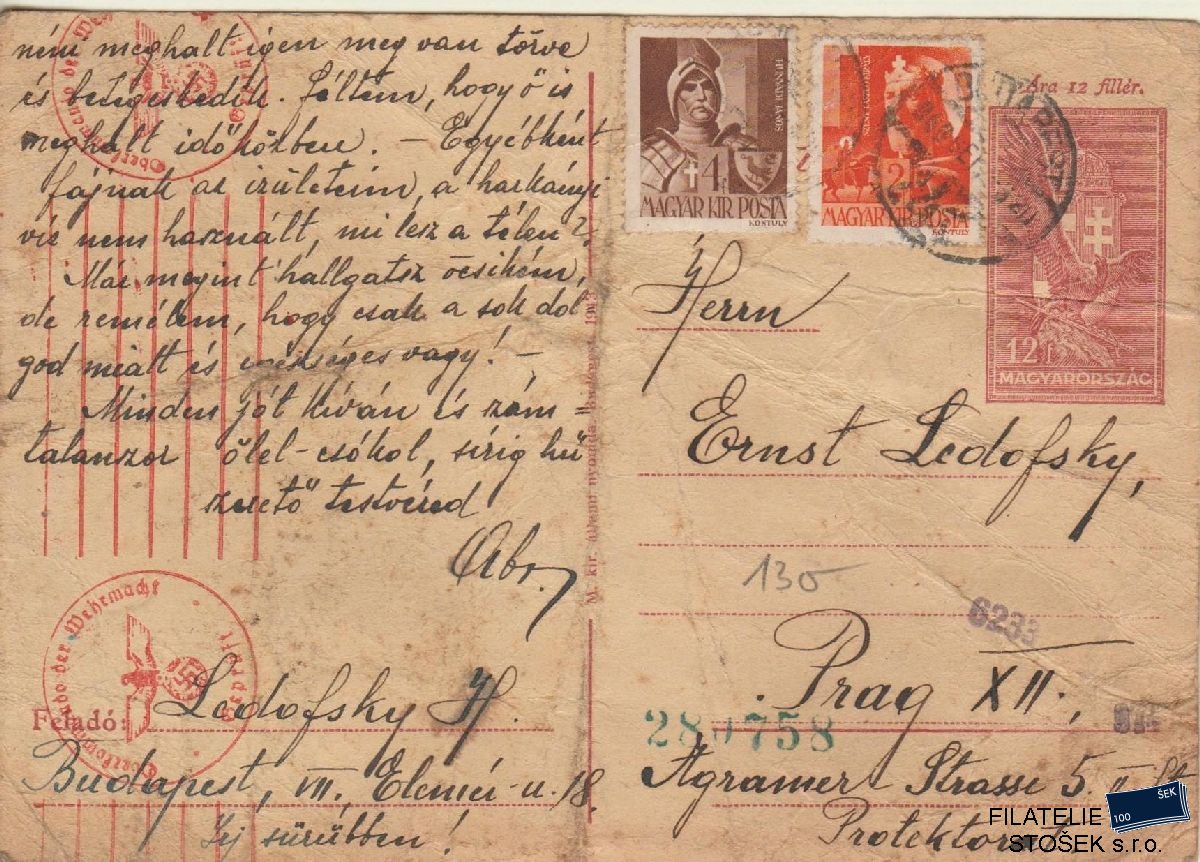 nem meghalt igen meg van törve
és betegeskedik. Féltem, hogy ő is
meghalt időközben. – Egyébként
fájnak az izületeim, a harkányi
víz nem használt, mi lesz a télen?
Már megint hallgatsz öcsikém,
de remélem, hogy csak a sok dol
god miatt és egészséges vagy! –
Minden jót kíván és szám=
talanszor ölel-csókol, sírig hű
szerető testvéred
Oberkommando der Wehrmacht
Geprüft
Feladó: Ledofsky H.
Budapest, VII. Elemér-u. 18.
Írj sürübben!
M. kir. állami nyomda, Budapest. 1943.
HUNYADI JÁNOS
4f
MAGYAR KIR. POSTA
KONTULY
2f
MAGYAR KIR. POSTA
KONTULY
BUDAPEST
Ára 12 fillér.
12 f
MAGYARORSZÁG
Herrn
Ernst Ledofsky,
130-
6233
Prag XII.,
280758
Agramer Strasse 5.
Protektorat
FILATELIE
STOŠEK s.r.o.
100 ŠEK